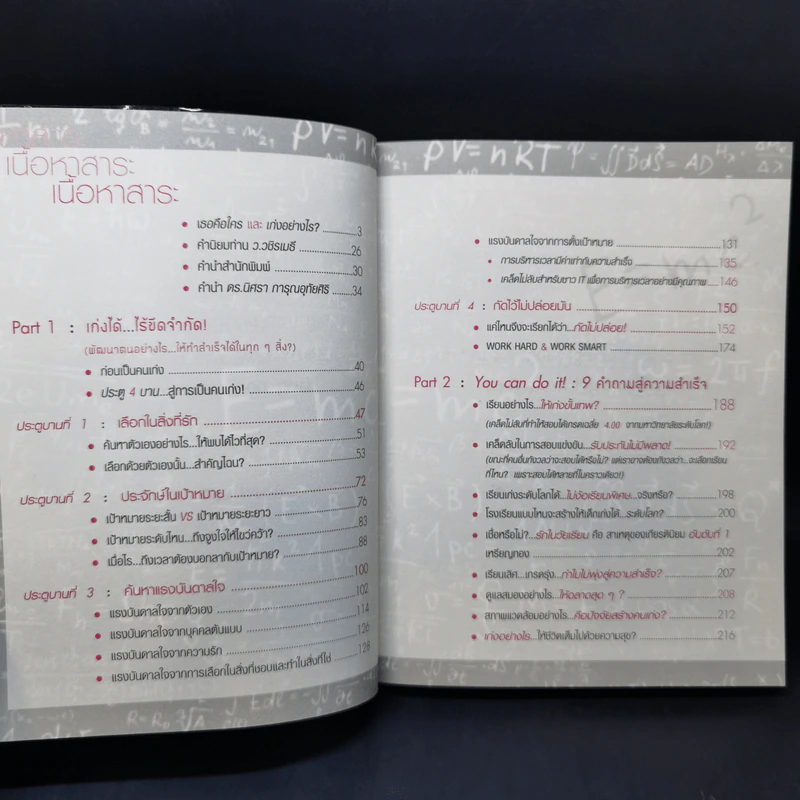 เนื้อหาสาระ
เนื้อหาสาระ
• เธอคือใคร และ เก่งอย่างไร? 3
• คำนิยมท่าน ว.วชิรเมธี 26
• คำนำสำนักพิมพ์ 30
• คำนำ ดร.นิศรา การุณอุทัยศิริ 34
Part 1 : เก่งได้...ไร้ขีดจำกัด!
(พัฒนาตนอย่างไร...ให้ทำสำเร็จได้ในทุก ๆ สิ่ง?)
• ก่อนเป็นคนเก่ง 40
• ประตู 4 บาน...สู่การเป็นคนเก่ง! 46
ประตูบานที่ 1 : เลือกในสิ่งที่รัก 47
• ค้นหาตัวเองอย่างไร...ให้พบได้ไวที่สุด? 51
• เลือกด้วยตัวเองนั้น...สำคัญไฉน? 53
ประตูบานที่ 2 : ประจักษ์ในเป้าหมาย 72
• เป้าหมายระยะสั้น VS เป้าหมายระยะยาว 76
• เป้าหมายระดับไหน...ถึงจูงใจให้ไขว่คว้า? 83
• เมื่อไร...ถึงเวลาต้องบอกลากับเป้าหมาย? 88
ประตูบานที่ 3 : ค้นหาแรงบันดาลใจ 100
• แรงบันดาลใจจากตัวเอง 102
• แรงบันดาลใจจากบุคคลต้นแบบ 114
• แรงบันดาลใจจากความรัก 126
• แรงบันดาลใจจากการเลือกในสิ่งที่ชอบและทำในสิ่งที่ใช่ 128
PV = nRT
• แรงบันดาลใจจากการตั้งเป้าหมาย 131
• การบริหารเวลามีค่าเท่ากับความสำเร็จ 135
• เคล็ดไม่ลับสำหรับชาว IT เพื่อการบริหารเวลาอย่างมีคุณภาพ 146
ประตูบานที่ 4 : กัดไว้ไม่ปล่อยมัน 150
• แค่ไหนจึงจะเรียกได้ว่า...กัดไม่ปล่อย! 152
• WORK HARD & WORK SMART 174
Part 2 : You can do it! : 9 คำถามสู่ความสำเร็จ
• เรียนอย่างไร...ให้เก่งขั้นเทพ? 188
(เคล็ดไม่ลับที่ทำให้สอบได้เกรดเฉลี่ย 4.00 จากมหาวิทยาลัยระดับโลก!)
• เคล็ดลับในการสอบแข่งขัน...รับประกันไม่มีพลาด! 192
(ขณะที่คนอื่นกังวลว่าจะสอบได้หรือไม่? แต่เราอาจต้องกังวลว่า...จะเลือกเรียน
ที่ไหน? เพราะสอบได้หลายที่ในคราวเดียว!)
• เรียนเก่งระดับโลกได้...ไม่ง้อเรียนพิเศษ...จริงหรือ? 198
• โรงเรียนแบบไหนจะสร้างให้เด็กเก่งได้...ระดับโลก? 200
• เชื่อหรือไม่?...รักในวัยเรียน คือ สาเหตุของเกียรตินิยม อันดับที่ 1
เหรียญทอง 202
• เรียนเลิศ...เกรดรุ่ง...ทำไมไม่พุ่งสู่ความสำเร็จ? 207
• ดูแลสมองอย่างไร...ให้ฉลาดสุด ๆ ? 208
• สภาพแวดล้อมอย่างไร...คือปัจจัยสร้างคนเก่ง? 212
• เก่งอย่างไร...ให้ชีวิตเต็มไปด้วยความสุข? 216